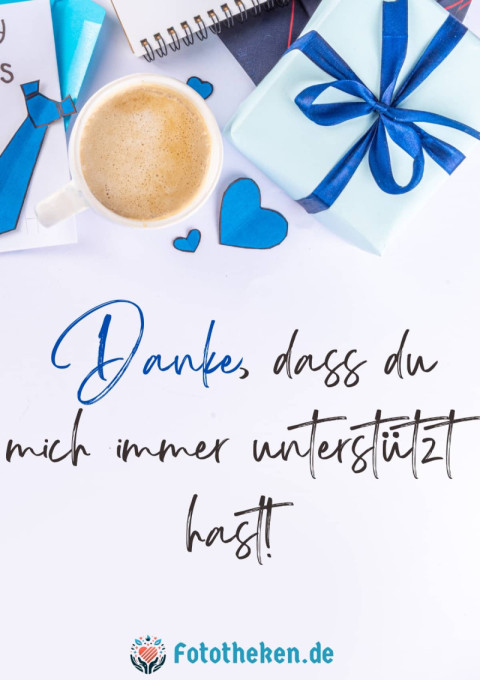 y
s
Danke, dass du
mich immer unterstützt
hast!
Fototheken.de